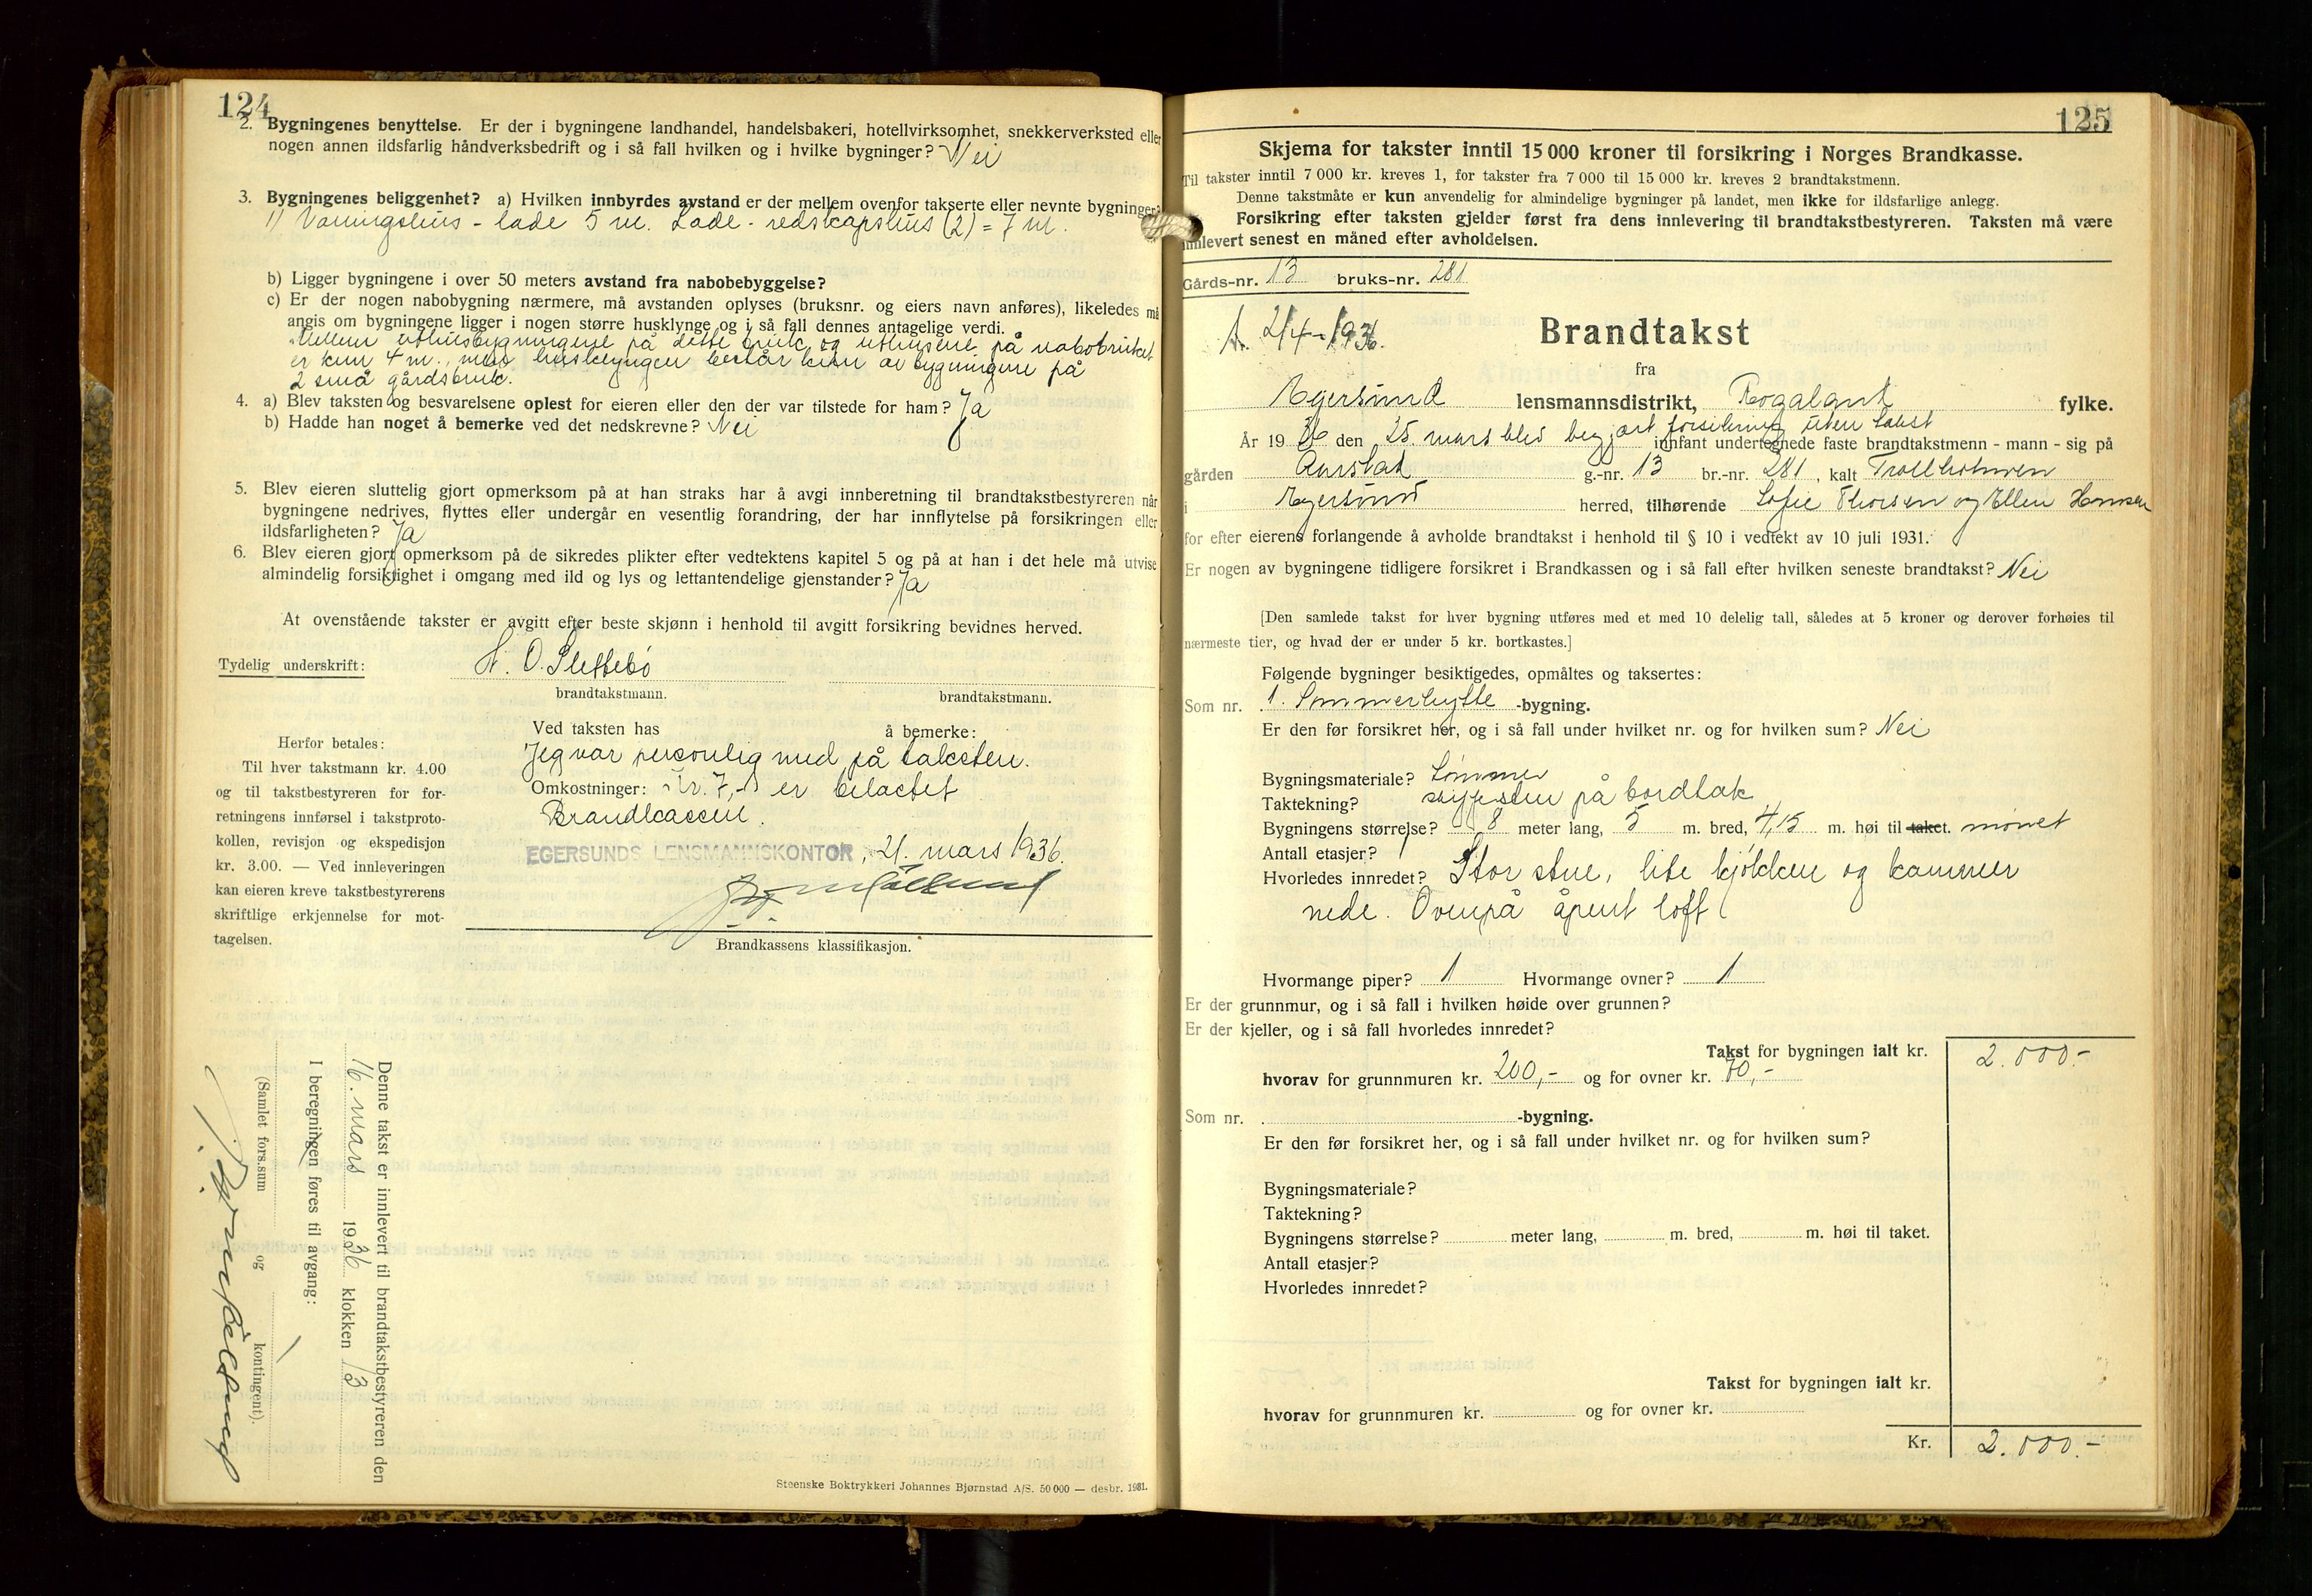 124
2. Bygningenes benyttelse. Er der i bygningene landhandel, handelsbakeri, hotellvirksomhet, snekkerverksted eller
nogen annen ildsfarlig håndverksbedrift og i så fall hvilken og i hvilke bygninger? Nei
3. Bygningenes beliggenhet? a) Hvilken innbyrdes avstand er der mellem ovenfor takserte eller nevnte bygninger?
1) Vaaningshus - lade 5 m. Lade - redskapshus (2) = 7 m.
b) Ligger bygningene i over 50 meters avstand fra nabobebyggelse?
c) Er der nogen nabobygning nærmere, må avstanden oplyses (bruksnr. og eiers navn anføres), likeledes må
angis om bygningene ligger i nogen større husklynge og i så fall dennes antagelige verdi.
Mellem uthusbygningene på dette bruk og uthusene på nabobruket
er kun 4 m., men husklyngen består kun av bygningene på
2 små gårdsbruk.
4. a) Blev taksten og besvarelsene oplest for eieren eller den der var tilstede for ham? Ja
b) Hadde han noget å bemerke ved det nedskrevne? Nei
5. Blev eieren sluttelig gjort opmerksom på at han straks har å avgi innberetning til brandtakstbestyreren når
bygningene nedrives, flyttes eller undergår en vesentlig forandring, der har innflytelse på forsikringen eller
ildsfarligheten? Ja
6. Blev eieren gjort opmerksom på de sikredes plikter efter vedtektens kapitel 5 og på at han i det hele må utvise
almindelig forsiktighet i omgang med ild og lys og lettantendelige gjenstander? Ja
At ovenstående takster er avgitt efter beste skjønn i henhold til avgitt forsikring bevidnes herved.
Tydelig underskrift: N. O. Slettebö
brandtakstmann. brandtakstmann.
Ved taksten has å bemerke:
Jeg var personlig med på taksten.
Omkostninger: kr. 7,- er belastet
Brandkassen.
EGERSUNDS LENSMANNSKONTOR, 21. mars 1936.
Herfor betales:
Til hver takstmann kr. 4.00
og til takstbestyreren for for-
retningens innførsel i takstproto-
kollen, revisjon og ekspedisjon
kr. 3.00. — Ved innleveringen
kan eieren kreve takstbestyrerens
skriftlige erkjennelse for mot-
tagelsen.
Brandkassens klassifikasjon.
Denne takst er innlevert til brandtakstbestyreren den
16. mars 1936 klokken 13
I beregningen føres til avgang:
(Samlet fors.sum og kontingent).
Steenske Boktrykkeri Johannes Bjørnstad A/S. 50 000 — desbr. 1931.
125
Skjema for takster inntil 15 000 kroner til forsikring i Norges Brandkasse.
Til takster inntil 7 000 kr. kreves 1, for takster fra 7 000 til 15 000 kr. kreves 2 brandtakstmenn.
Denne takstmåte er kun anvendelig for almindelige bygninger på landet, men ikke for ildsfarlige anlegg.
Forsikring efter taksten gjelder først fra dens innlevering til brandtakstbestyreren. Taksten må være
innlevert senest en måned efter avholdelsen.
Gårds-nr. 13 bruks-nr. 281
2/4-1936.
Brandtakst
fra
Egersund lensmannsdistrikt, Rogaland fylke.
År 1936 den 25. mars blev begjært forsikring uten takst innfant undertegnede faste brandtakstmenn - mann - sig på
gården Aarstad g.-nr. 13 br.-nr. 281, kalt Trollholmen
i Egersund herred, tilhørende Sofie Thorsen og Ellen Hansen
for efter eierens forlangende å avholde brandtakst i henhold til § 10 i vedtekt av 10 juli 1931.
Er nogen av bygningene tidligere forsikret i Brandkassen og i så fall efter hvilken seneste brandtakst? Nei
[Den samlede takst for hver bygning utføres med et med 10 delelig tall, således at 5 kroner og derover forhøies til
nærmeste tier, og hvad der er under 5 kr. bortkastes.]
Følgende bygninger besiktigedes, opmåltes og taksertes:
Som nr. 1. Sommerhytte -bygning.
Er den før forsikret her, og i så fall under hvilket nr. og for hvilken sum? Nei
Bygningsmateriale? Tømmer
Taktekning? skifersten på bordtak
Bygningens størrelse? 8 meter lang, 5 m. bred, 4,15 m. høi til taket. mønet
Antall etasjer? 1
Hvorledes innredet? Stor stue, lite kjökken og kammer
nede. Ovenpå åpent loft
Hvormange piper? 1 Hvormange ovner? 1
Er der grunnmur, og i så fall i hvilken høide over grunnen?
Er der kjeller, og i så fall hvorledes innredet?
Takst for bygningen ialt kr. 2.000.-
hvorav for grunnmuren kr. 200,- og for ovner kr. 70,-
Som nr. -bygning.
Er den før forsikret her, og i så fall under hvilket nr. og for hvilken sum?
Bygningsmateriale?
Taktekning?
Bygningens størrelse? meter lang, m. bred, m. høi til taket.
Antall etasjer?
Hvorledes innredet?
Takst for bygningen ialt kr.
hvorav for grunnmuren kr. og for ovner kr.
Kr. 2.000.-